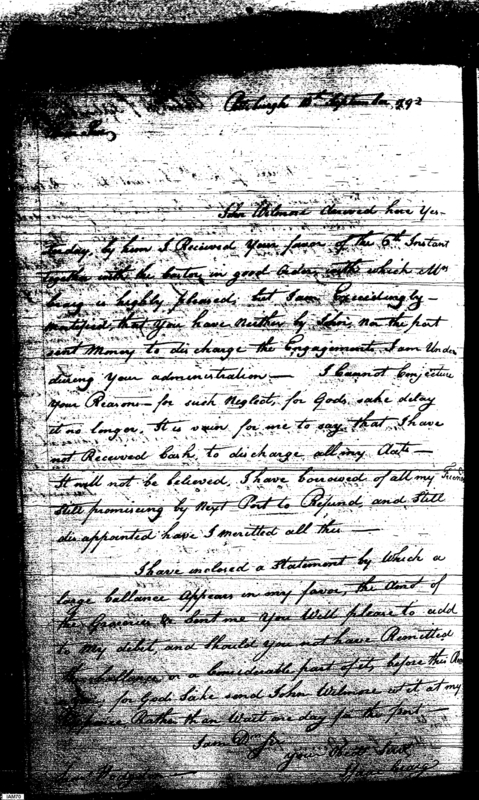 Pittsburgh 15th September 1792
Dear Sir,
John Wilmore Arrived here Yes-
terday, by him I Recieved Your favor of the 6th Instant
together with the in good Order, with which Mrs
Craig is highly pleased, but I am Exceedingly
mortified, that You have Neither by John, Nor the post
sent Money to discharge the Engagements I am Under
during Your administration — I Cannot Conjecture
Your Reasons for such Neglect, for Gods sake delay
it no longer. It is vain for me to say that I have
not Received Cash to discharge all my
It will not be believed, I have borrowed of all my Friends
still promiseing by Next Post to Refund, and Still
disappointed have I merritted all this —
I have inclosed a Statement by Which a
large ballance Appears in my favor, the Amt of
the Groceries &c Sent me You Will please to add
to My debit, and Should you not have Remitted
the ballance or a Considerable part of it, before this
for Gods Sake send John Wilmore wt it at my
Expence Rather than Wait one day for the post —
I am Dr Sir
your Mo Obt Servt
Isaac Craig
Saml Hodgdon
IAM70